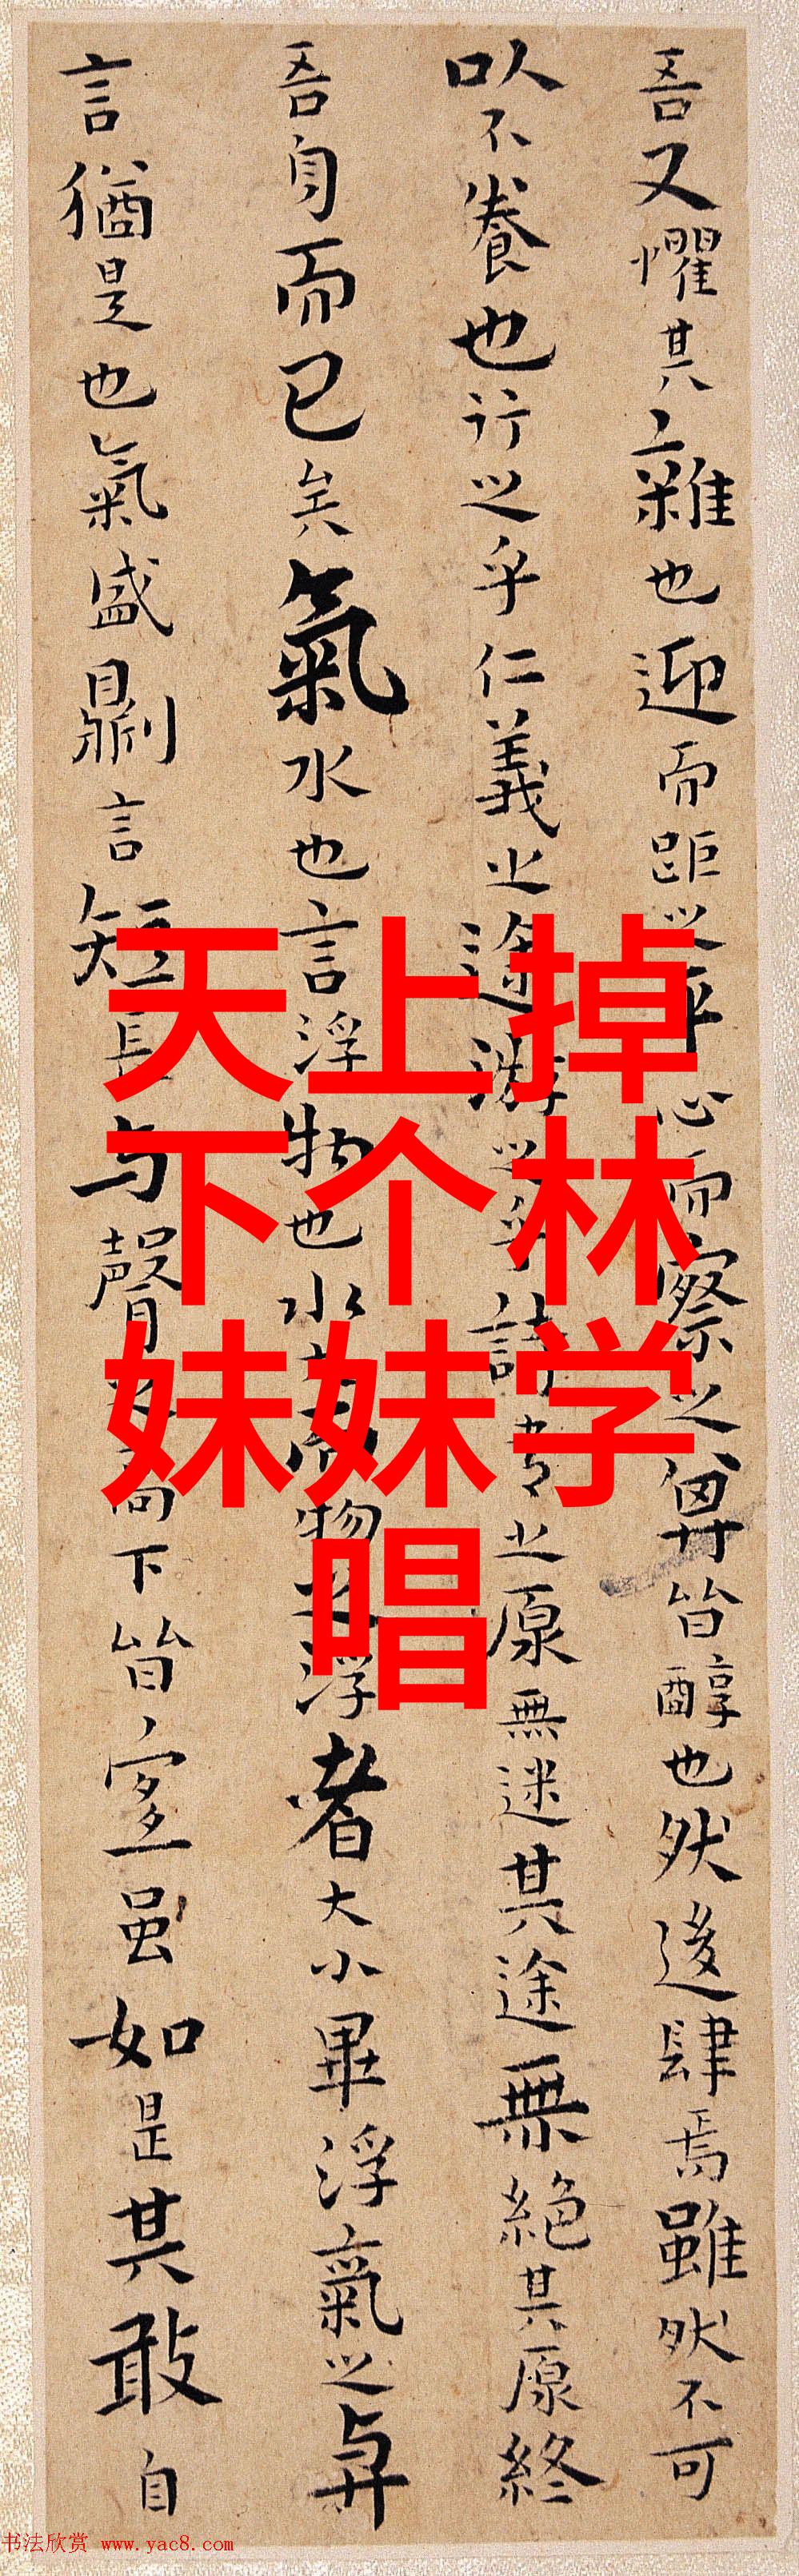 吾又懼其雜也迎而距之平心而察之其皆醇也然後肆焉雖然不可
以不養也行之乎仁義之途游之乎詩書之原無迷其途無絕其原終
吾身而已矣氣水也言浮物也水大而物之浮者大小畢浮氣之與
言猶是也氣盛則言短長與聲之高下皆宜雖如是其敢自
天上掉
下个林
妹妹学
唱
书法欣赏 www.yac8.com